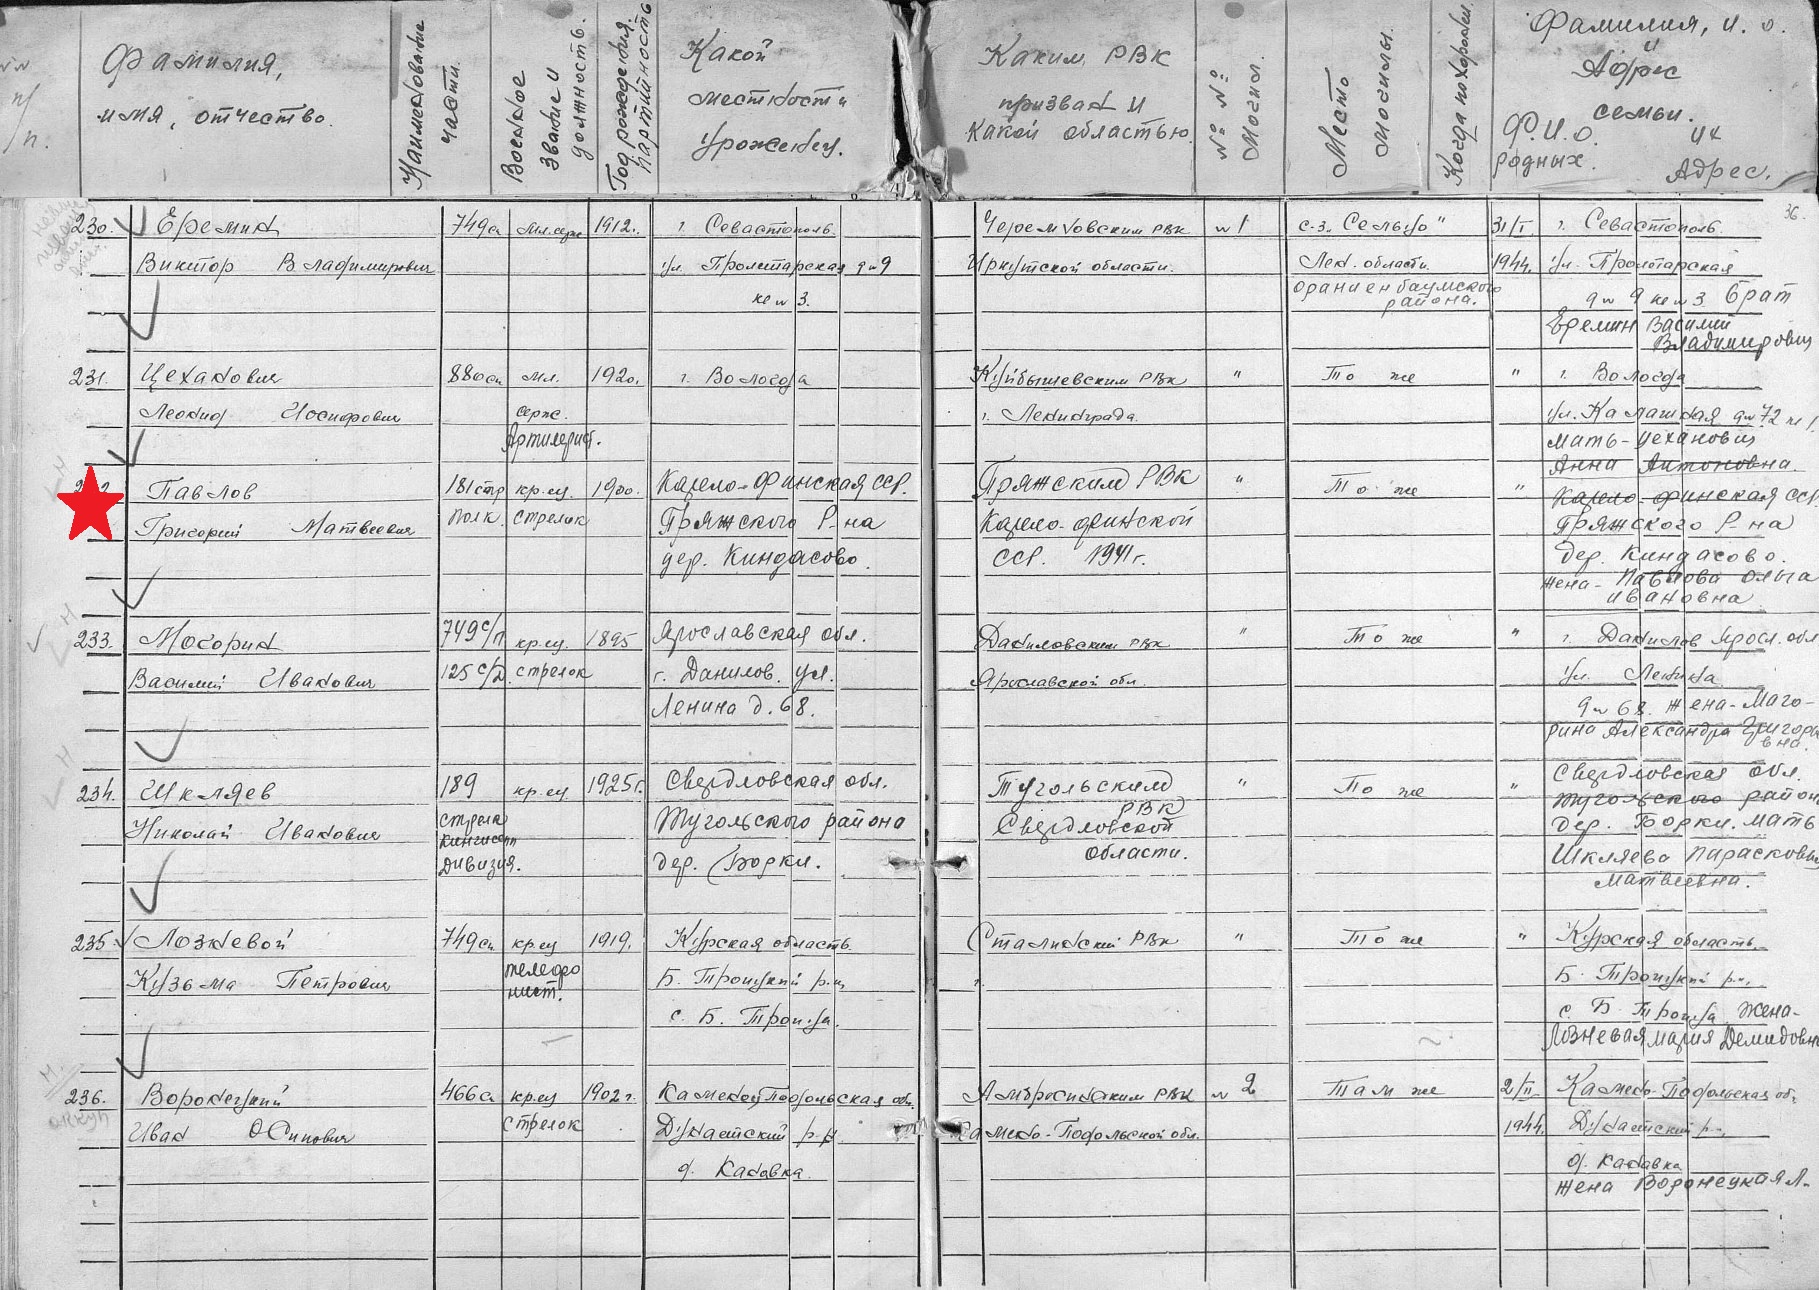 п/п.
Фамилия,
имя, отчество.
Наименование
части.
Военное
звание и
должность.
Год рождения.
партийность
Какой
местности
урожен́ец.
Каким РВК
призван и
какой областью.
№ №
Могил.
Место
Могилы.
Когда похоронен.
Фамилия, и. о.
и
Адрес
семьи.
Ф.И.О. их
родных. Адрес.
36.
230. Еремин 749сп мл.серж 1912г. г. Севастополь Черемховским РВК № 1 с-з. Сельцо" 31/I г. Севастополь.
Виктор Владимирович ул. Пролетарская д№9 Иркутской области. Лен. области. 1944г. ул. Пролетарская
кв № 3. Ораниенбаумского д№ 9 кв № 3 брат
района. Еремин Василий
Владимирович
231. Цеханович 880сп мл. 1920г. г. Вологда Куйбышевским РВК " То же " г. Вологда
Леонид Иосифович серж. г. Ленинграда. ул. д№72
Артилерист. мать-Цеханович
Анна Антоновна.
Павлов 181стр кр.ец. 1900. Карело-Финская ССР. Пряжским РВК " То же " Карело-финская ССР
Григорий Матвеевич полк. стрелок Пряжского Р-на Карело-финской Пряжского Р-на
дер. Киндасово. ССР. 1941г. дер. Киндасово.
жена-Павлова Ольга
Ивановна
233. Могорин 749с/п кр.ец. 1895 Ярославская обл. Даниловским РВК " То же " г. Данилов Яросл. обл
Василий Иванович 125 с/д. стрелок г. Данилов. ул. Ярославской обл. ул. Ленина
Ленина д. 68. д№ 68. жена-Маго-
рина Александра Григорь
вна.
234. Шкляев 189 кр.ец. 1925г. Свердловская обл. Тугольским " То же " Свердловская обл.
Николай Иванович стрелк Тугольского района РВК Тугольского район
Кингисепп дер. Борки. Свердловской дер. Борки. мать
Дивизия. области. Шкляева Парасковья
Матвеевна.
235. Лозневой 749сп кр.ец 1919. Курская область. Сталинский РВК " То же " Курская область.
Кузьма Петрович телефо Б. Троицкий р-н г. Б. Троицкий р-н,
нист. с. Б. Троица. с. Б. Троица. жена-
Лозневая мария Демидовна
236. Воронецкий 466сп кр.ец 1902г. Каменец Подольская обл. РВК № 2 Там же 2/II Каменс-Подольская об.
Иван Осипович стрелок Дунаетский р-н Каменс-Подольской обл. 1944. Дунаетский р-н,
д. Канавка. д. Канавка
жена Воронецкая Л-